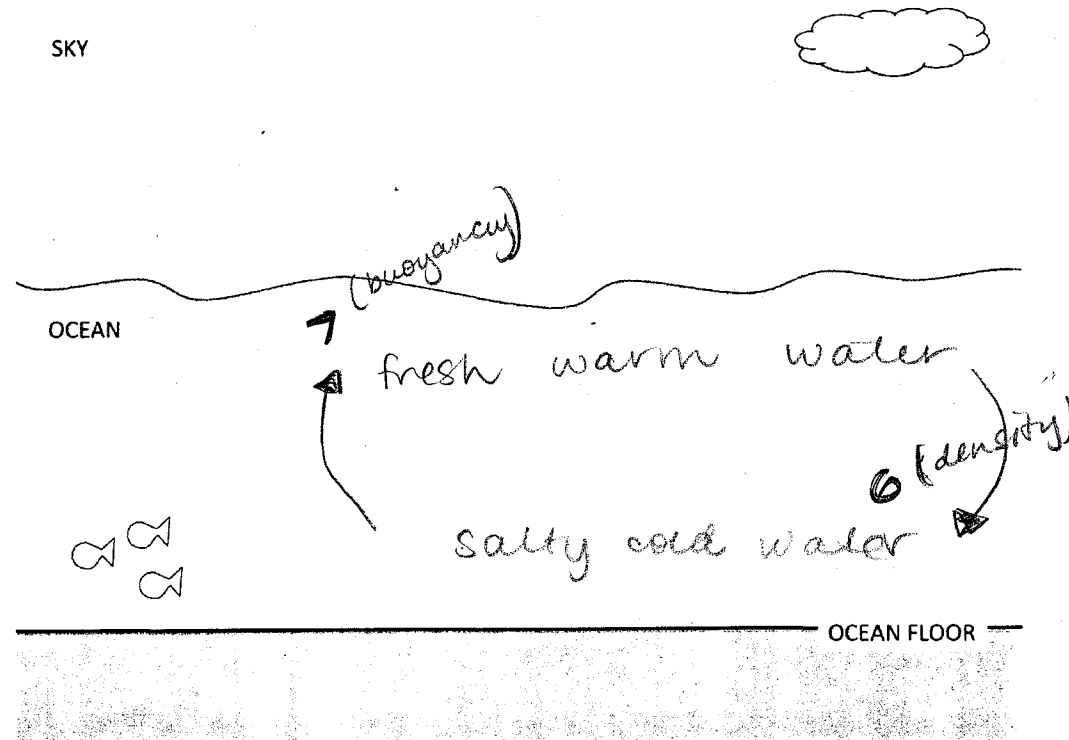 SKY
(buoyancy)
OCEAN
7
fresh warm water
6 (density)
salty cold water
OCEAN FLOOR